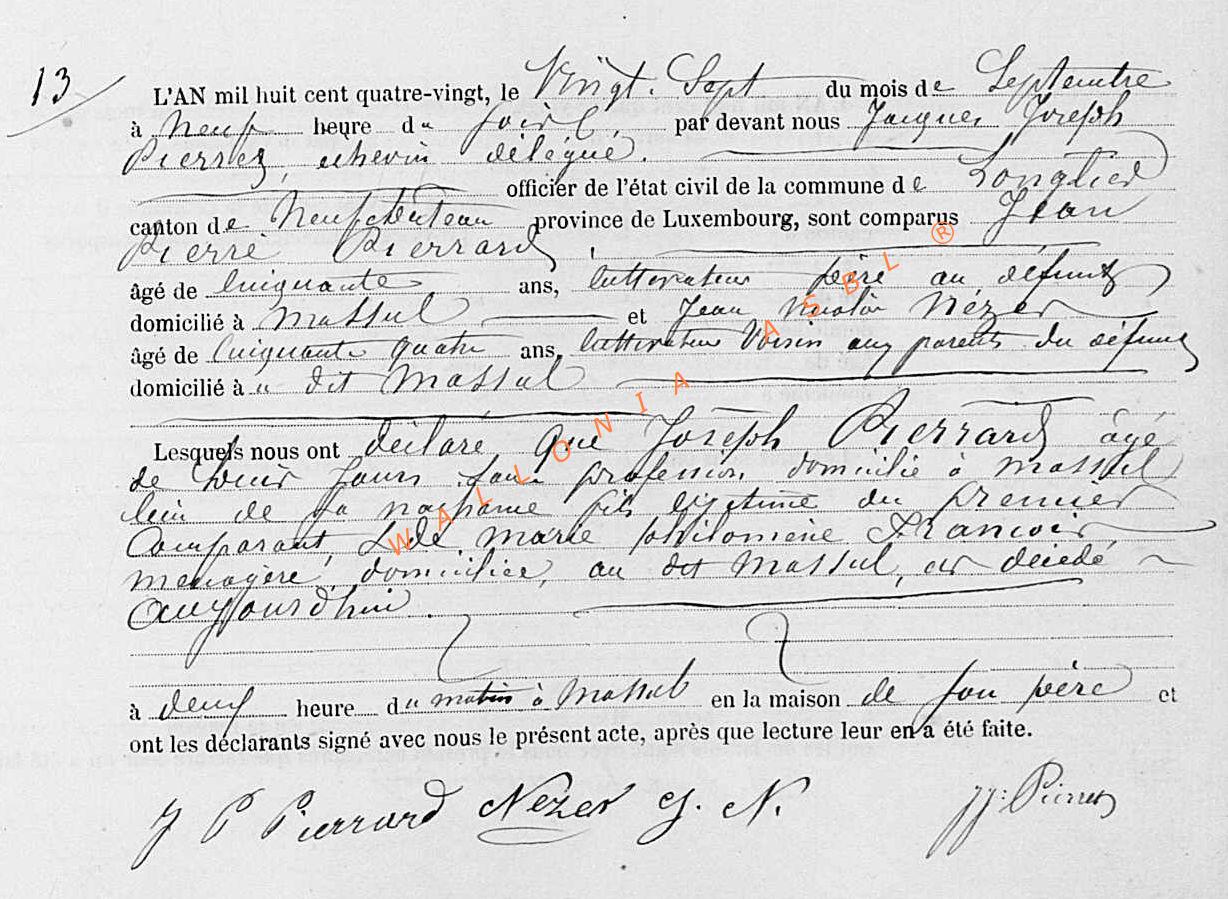 13
L'AN mil huit cent quatre-vingt, le Vingt-Sept du mois de Septembre
à Neuf heure du Soir, par devant nous Jacques Joseph
Pierret, échevin délégué.
officier de l'état civil de la commune de Longlier
canton de Neufchâteau province de Luxembourg, sont comparus Jean
Pierre Pierrard,
âgé de Cinquante ans, cultivateur père au défunt
domicilié à Massul et Jean Nicolas Nézer
âgé de Cinquante quatre ans, cultivateur Voisin aux parents du défunt
domicilié à u dit Massul
Lesquels nous ont déclaré que Joseph Pierrard âgé
de jours sans profession, domicilié à Massul
lieu de sa naissance fils légitime du premier
Comparant, & de Marie philomène François,
ménagère, domiciliée, au dit Massul, est décédé
Aujourd'hui.
à deux heure du matin à Massul en la maison de son père et
ont les déclarants signé avec nous le présent acte, après que lecture leur en a été faite.
J P Pierrard Nézer J. N. JJ: Pierret
WALLONIA ASBL ®